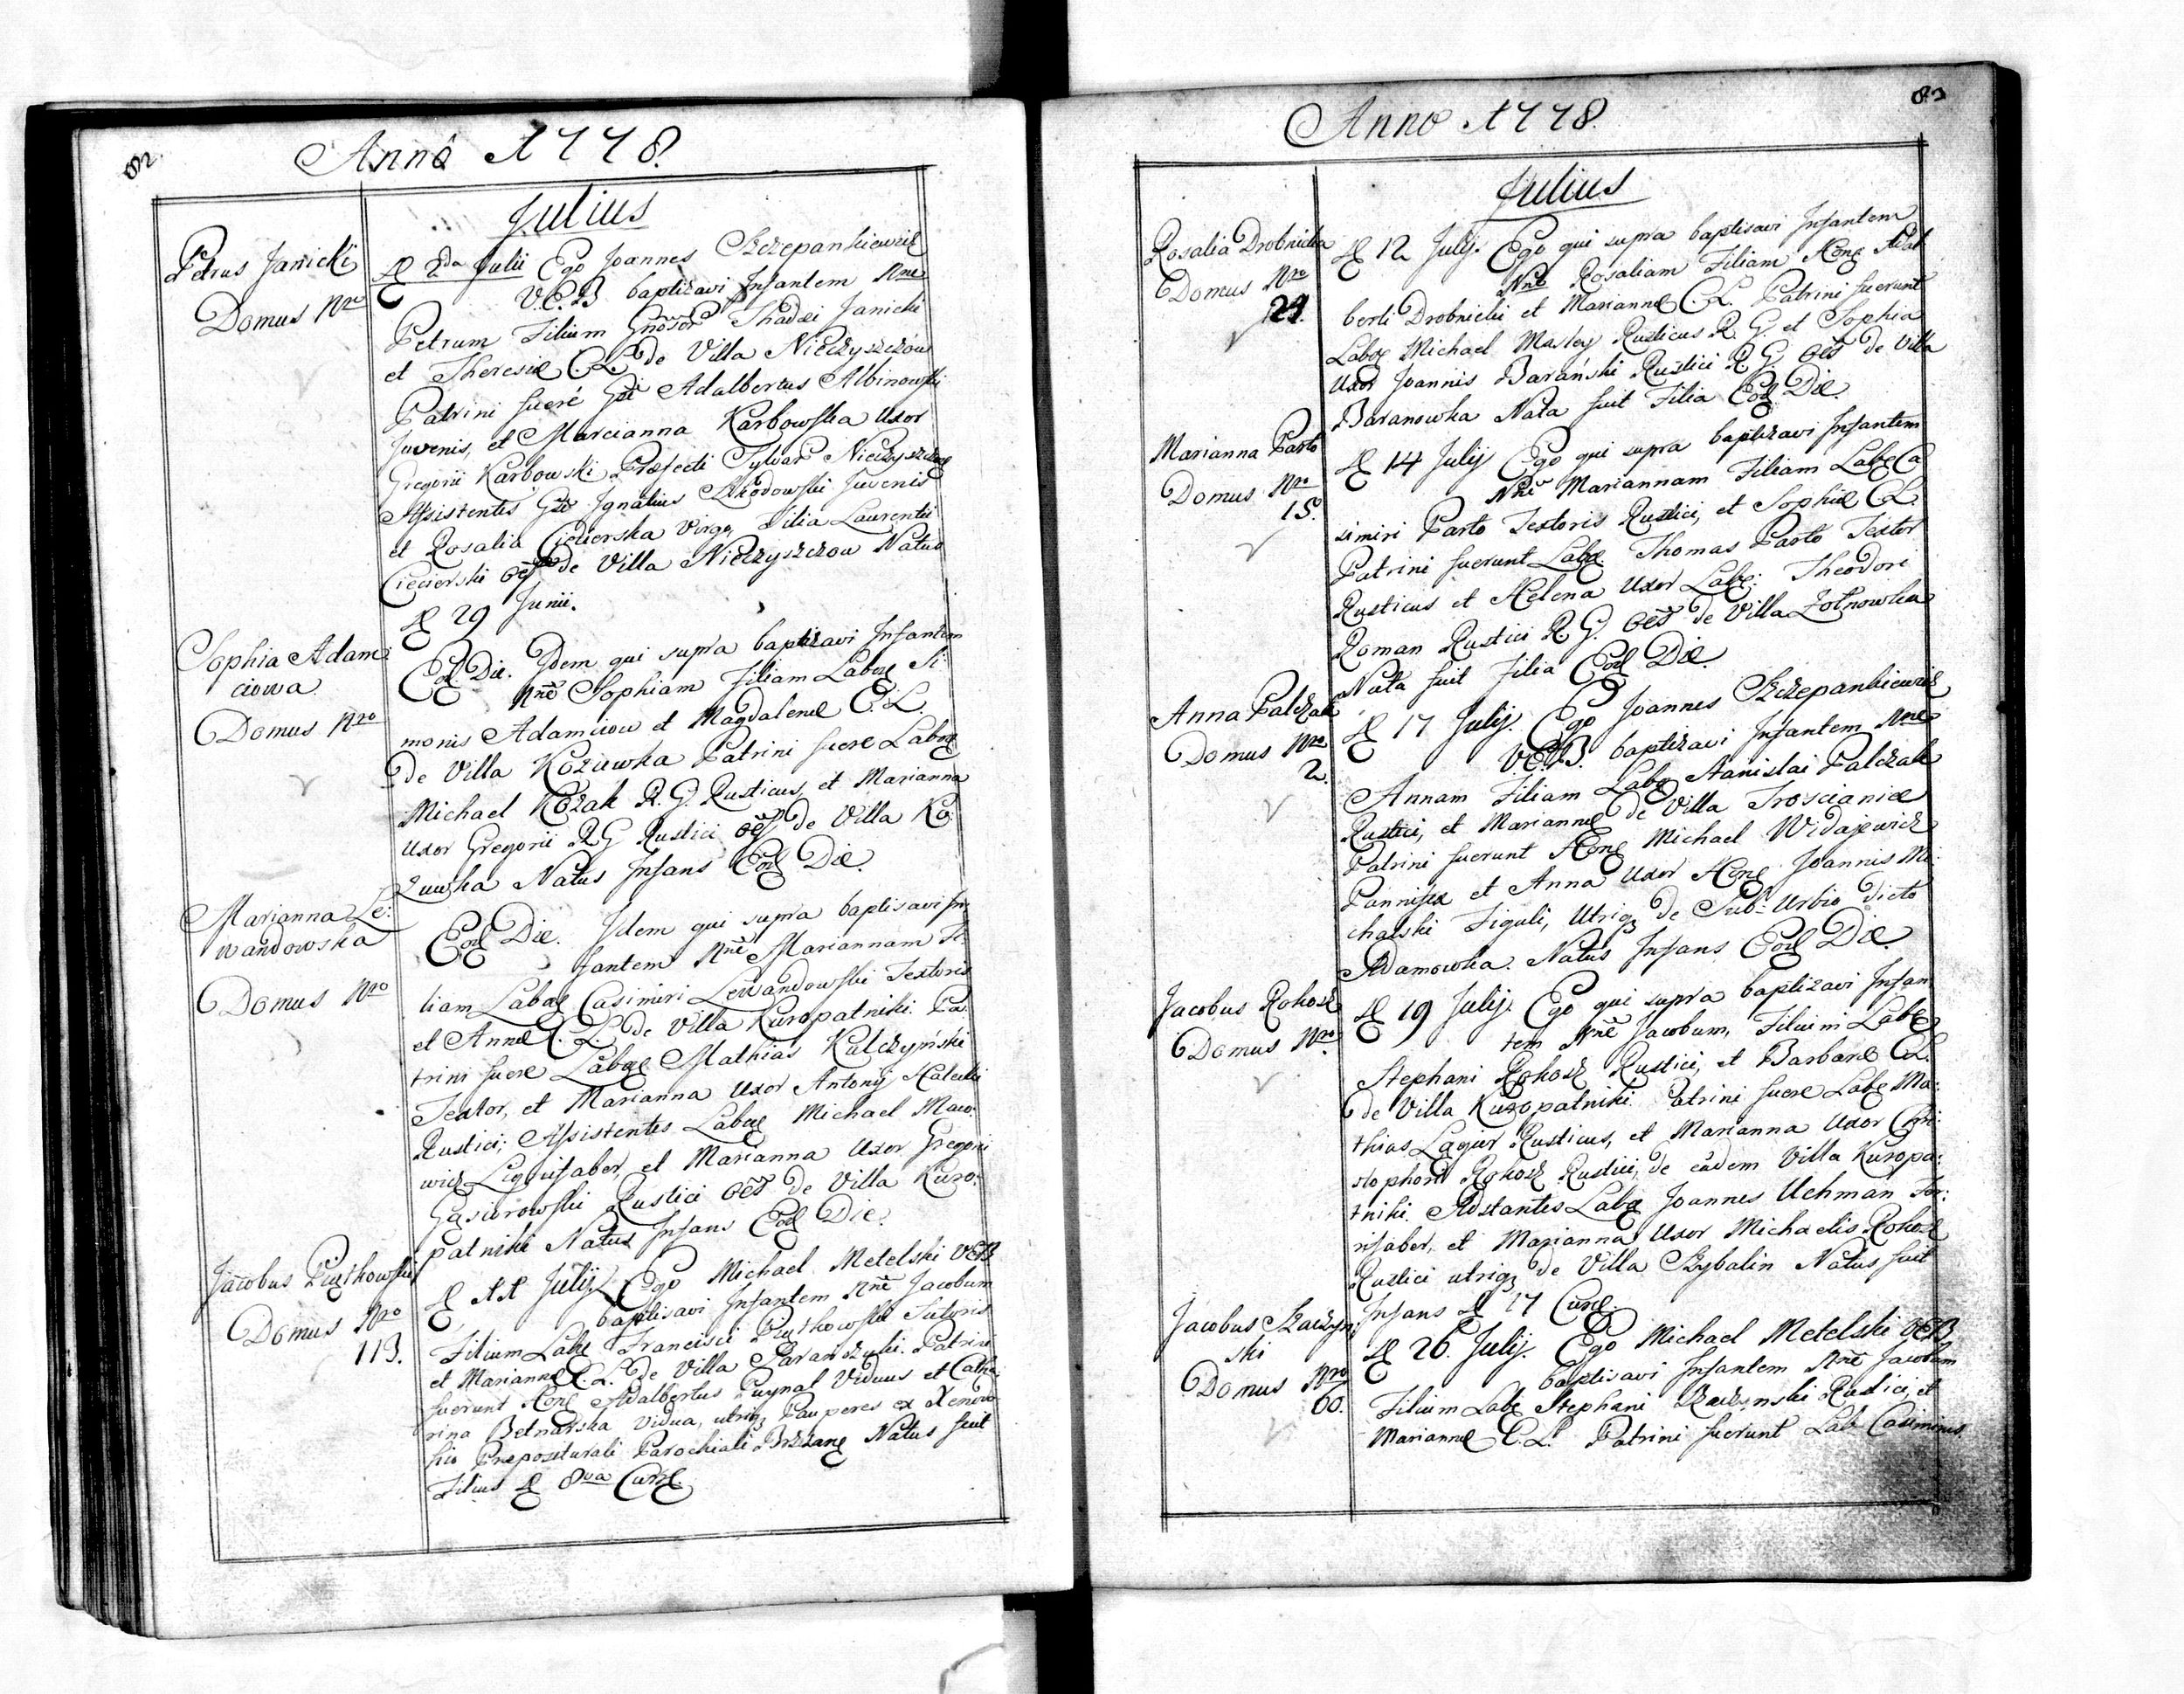 82.
Anno 1778.
Julius
Petrus Janicki
Domus Nro
D 2da Julii Ego Joannes Szczepankiewicz
V.E.B baptizavi Infantem Nne
Petrum Filium Gnosor Thadæi Janicki
et Theresiæ C.L. de Villa Nieczyszczow
Patrini fueré Gdi Adalbertus Albinowski
Juvenis, et Marcianna Karbowska Uxor
Gregorii Karbowski Præfecti Sylvar Nieczyszczow
Assistentes Gd Ignatius Juvenis
et Rosalia Ciecierska Virgo, Filia Laurentii
Ciecierski oes de Villa Nieczyszczow Natus
D 29 Junii.
Sophia Adam
ciowa
Domus Nro
Eod Die. Idem qui supra baptizavi Infantem
Nne Sophiam Filiam Labor Si:
monis Adamciow et Magdalenæ C.L.
de Villa Koziowka Patrini fuere Labor
Michael Kozak R.G. Rusticus, et Marianna
Uxor Gregorii RG Rustici oes de Villa Ko:
ziuwka Natus Infans Eod Die.
Marianna Le:
wandowska
Domus Nro
Eod Die. Idem qui supra baptisavi In
fantem Nne Mariannam Fi:
liam Labor Casimiri Lewandowski Textoris
et Annæ C.L. de Villa Kuropatniki. Pa:
trini fuere Labor Mathias Kulczyński
Textor, et Marianna Uxor Antonij
Rustici; Assistentes Labor Michael Maco:
wicz Lignifaber, et Marianna Uxor Gregorii
Gasiorowski Rustici oes de Villa Kuro:
patniki Natus Infans Eod Die.
Jacobus Piątkowski
Domus Nro
113.
D 11 Julij Ego Michael Metelski VEB
baptisavi Infantem Nne Jacobum
Filium Labe Francisci Piątkowski Sutoris
et Mariannæ C.L. de Villa Patrini
fuerunt Hone Adalbertus Viduus et Catha:
rina Betnarska Vidua, utriq Pauperes ex Xenodo
hio Præpositurali Parochiali Brzezane Natus fuit
Filius D 8va Curre.
83
Anno 1778.
Julius
Rosalia Drobnicka
Domus Nro
24.
D 12 Julij. Ego qui supra baptisavi Infantem
Nne Rosaliam Filiam Hone Adal
berti Drobnicki et Mariannæ C.L. Patrini fuerunt
Labor Michael Masley Rusticus R.G. et Sophia
Uxor Joannis Barański Rustici R.G. oes de Villa
Baranowka Nata fuit Filia Eod Die.
Marianna Parto
Domus Nro
15.
D 14 Julij Ego qui supra baptizavi Infantem
Nne Mariannam Filiam Labe Ca
simiri Parto Textoris Rustici, et Sophiæ C.L.
Patrini fuerunt Labe Thomas Parto Textor
Rusticus et Helena Uxor Labe: Theodori
Roman Rustici R.G. oes de Villa Zolnowka
Nata fuit Filia Eod Die.
Anna Palczak
Domus Nro
2.
D 17 Julij. Ego Joannes Szczepankiewicz
V.E.B. baptizavi Infantem Nne
Annam Filiam Labe Stanislai Palczak
Rustici, et Mariannæ de Villa Troscianice
Patrini fuerunt Hone Michael Widajewicz
Pannifex et Anna Uxor Hone Joannis Mi:
chalski Figuli, Utriq de Sub-Urbio dicto
Adamowka. Natus Infans Eod Die.
Jacobus Rokosz
Domus Nro.
D 19 Julij. Ego qui supra baptizavi Infan
tem Nne Jacobum, Filium Labe
Stephani Rokosz Rustici, et Barbaræ C.L.
de Villa Kuropatniki. Patrini fuere Labe Ma:
thias Rusticus, et Marianna Uxor Chri:
stophori Rokosz Rustici, de eadem Villa Kuropa:
tniki. Adstantes Labe Joannes Uchman For:
rifaber, et Marianna Uxor Michaelis Rokosz
Rustici utriq de Villa Szybalin Natus fuit
Infans D 17 Curre.
Jacobus Szaczyn
ski
Domus Nro
60.
D 26. Julij. Ego Michael Metelski VEB
baptisavi Infantem Nne Jacobum
Filium Labe Stephani Rustici, et
Mariannæ C.L. Patrini fuerunt Lab Casimirus